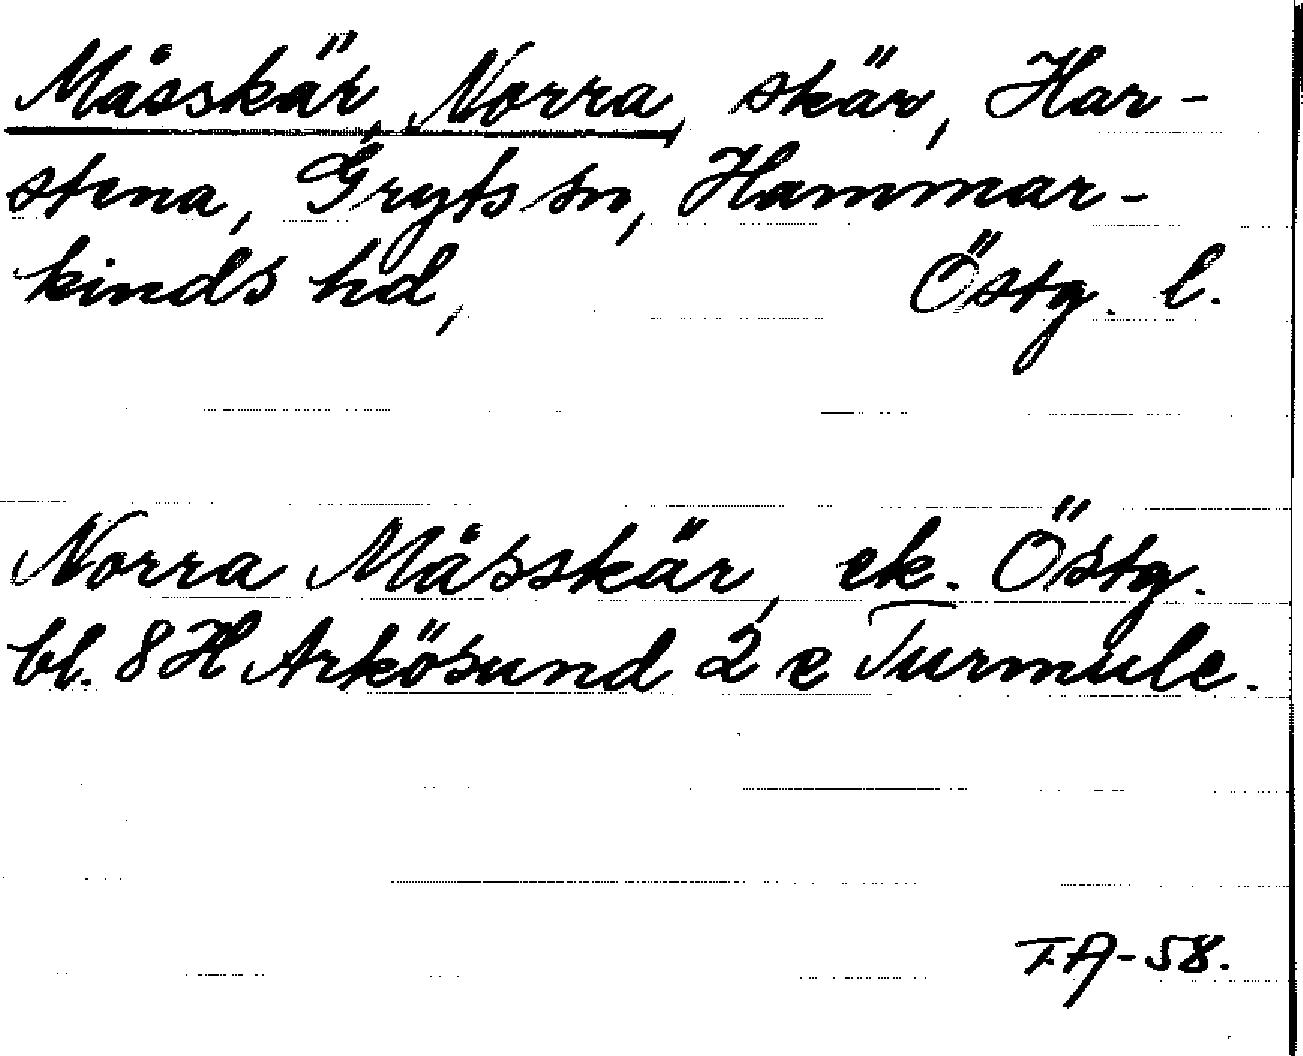 Måsskär, Norra, skär, Har-
stena, Gryts sn, Hammar-
kinds hd, Östg. l.
Norra Måsskär, ek. Östg.
bl. 8 H Arkösund 2 e Turmule.
T.A-58.